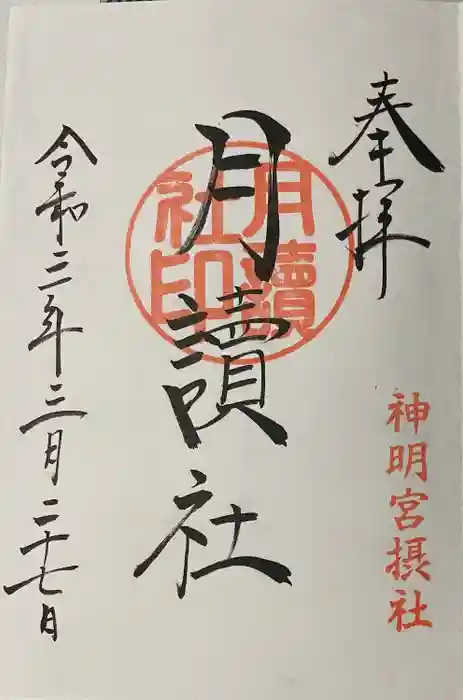 奉拝
神明宮摂社
月讀社
月讀社印
令和三年三月二十七日